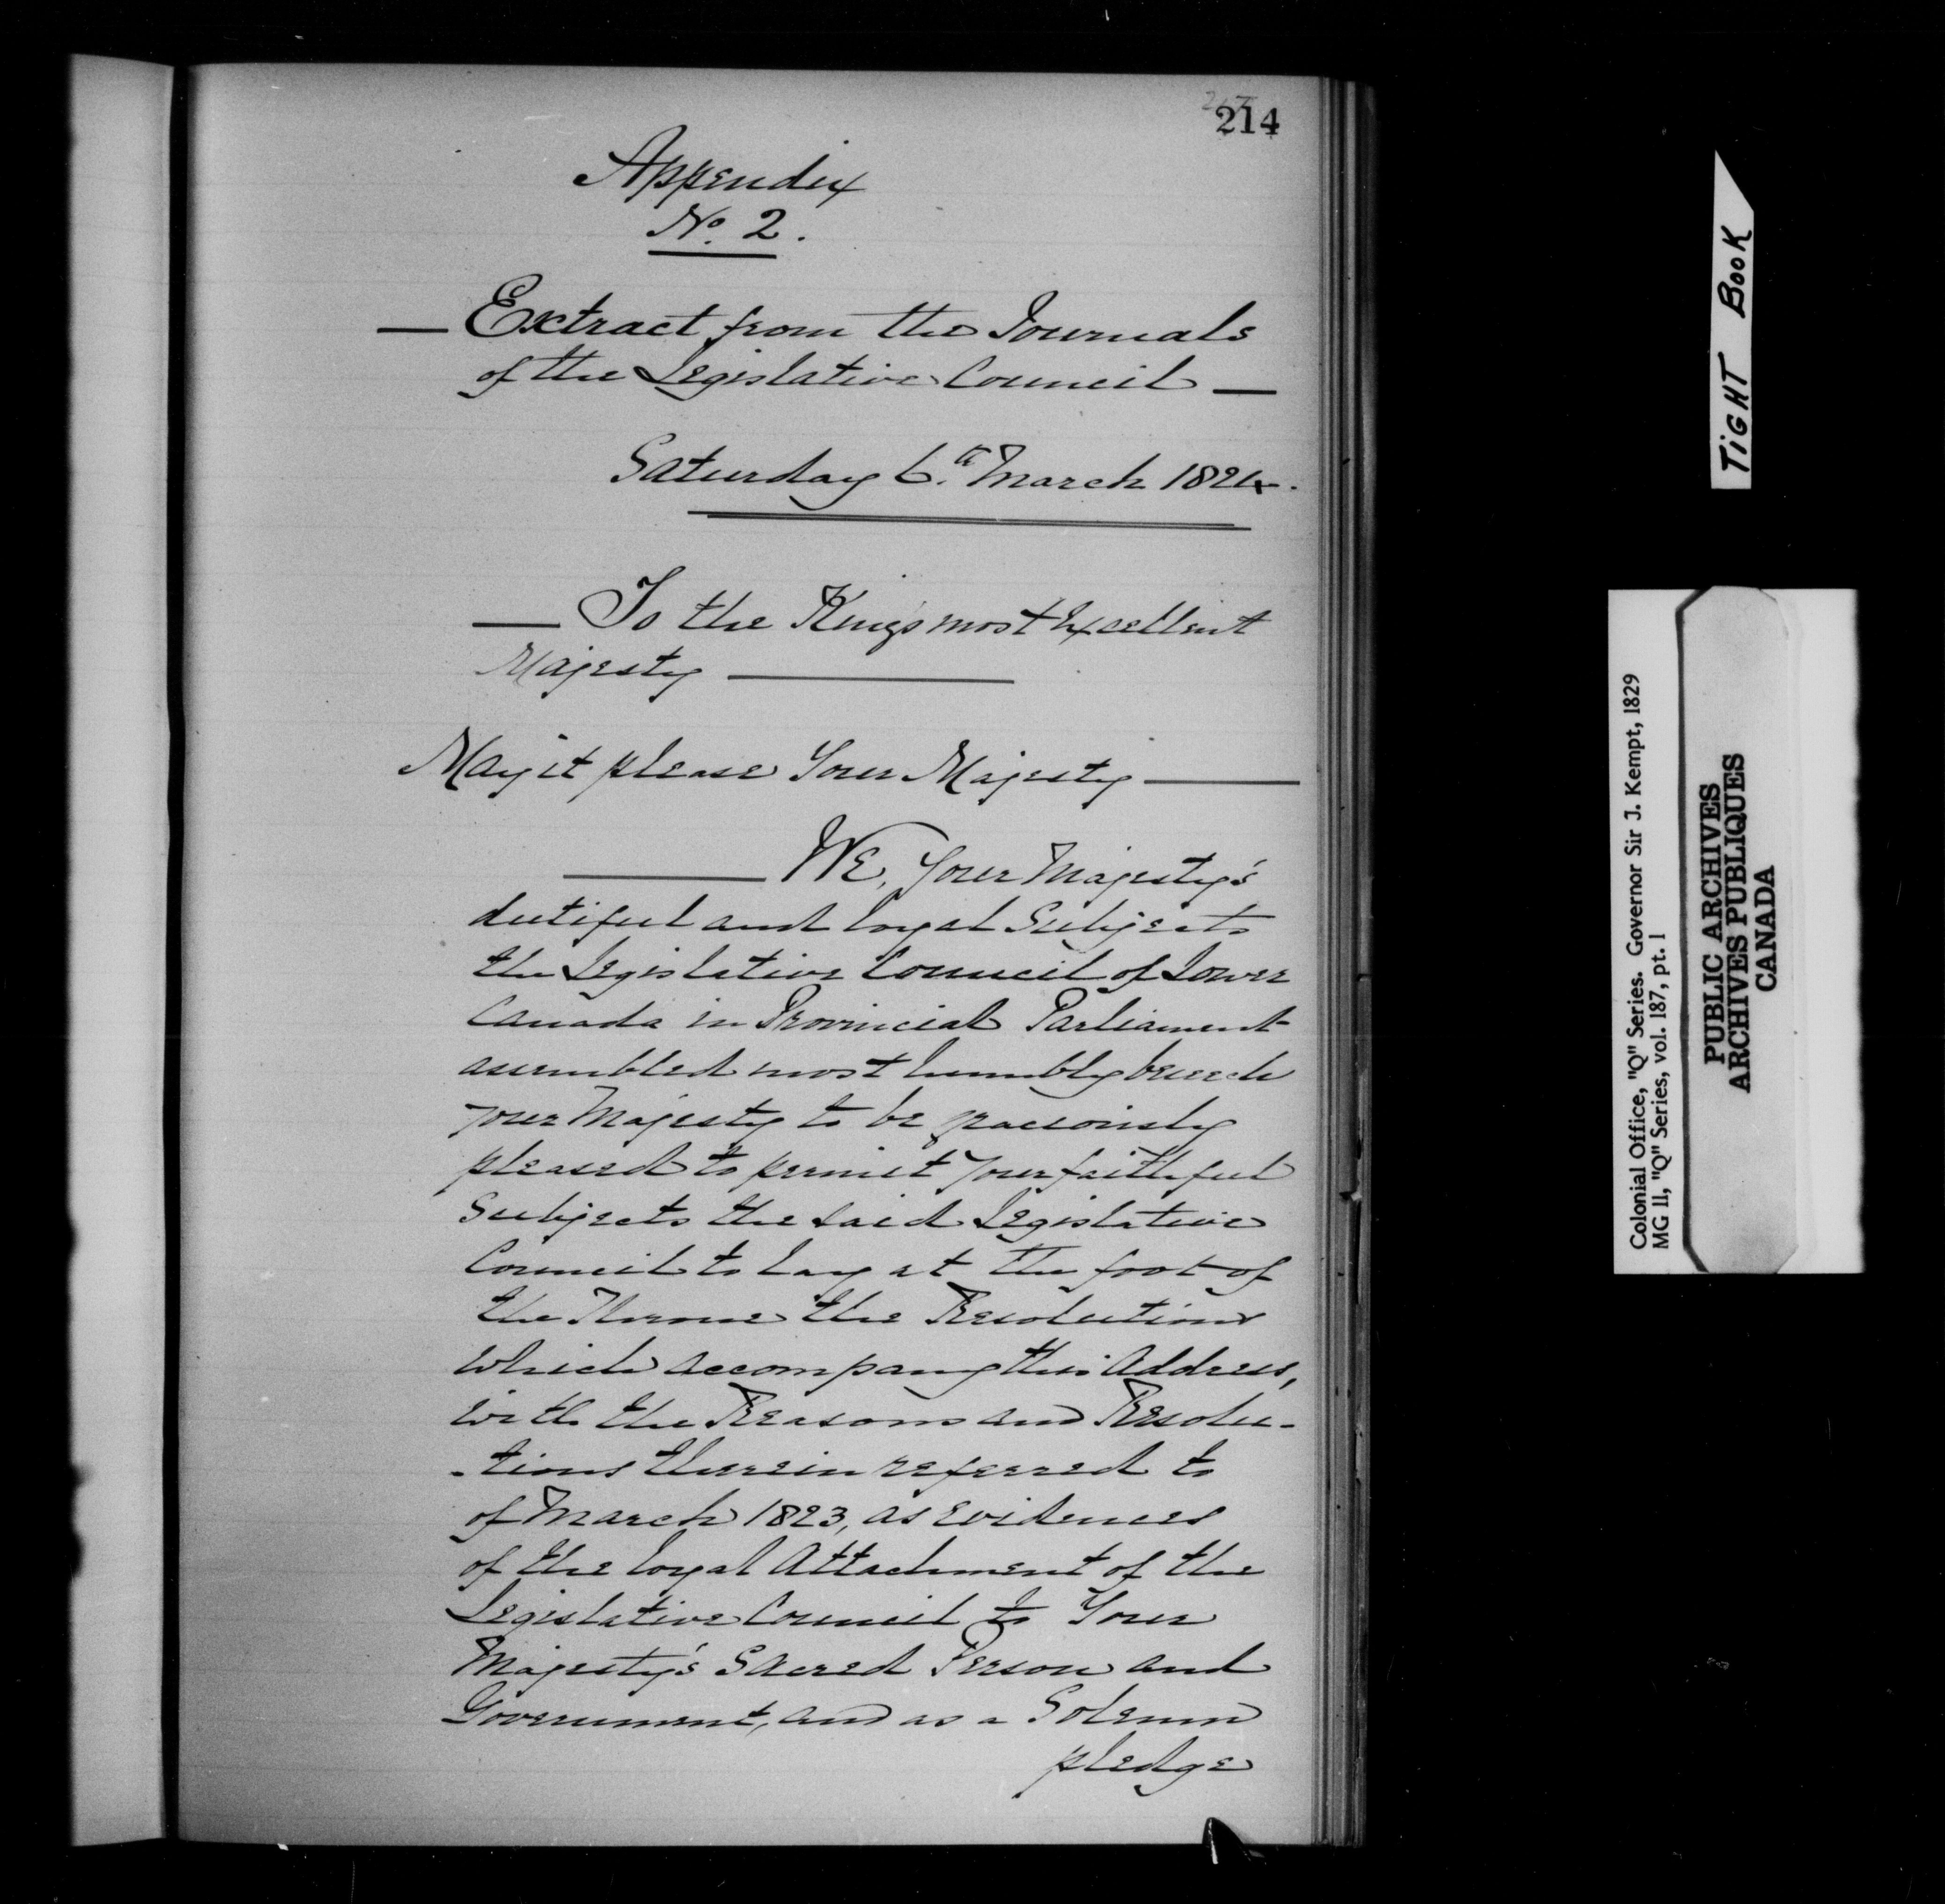 214
Appendix
No. 2.
— Extract from the Journals
of the Legislative Council —
Saturday 6.th March 1824.
— To the King's most Excellent
Majesty —
May it please Your Majesty —
— We, Your Majesty's
dutiful and loyal Subjects
the Legislative Council of Lower
Canada in Provincial Parliament
assembled most humbly beseech
your Majesty to be graciously
pleased to permit your faithful
Subjects the said Legislative
Council to lay at the foot of
the Throne the Resolutions
which accompany this Address,
with the Reasons and Resolu-
-tions therein referred to
of March 1823, as evidences
of the loyal Attachment of the
Legislative Council to Your
Majesty's Sacred Person and
Government, and as a Solemn
pledge
TIGHT BOOK
Colonial Office, "Q" Series. Governor Sir J. Kempt, 1829
MG 11, "Q" Series, vol. 187, pt. 1
PUBLIC ARCHIVES
ARCHIVES PUBLIQUES
CANADA